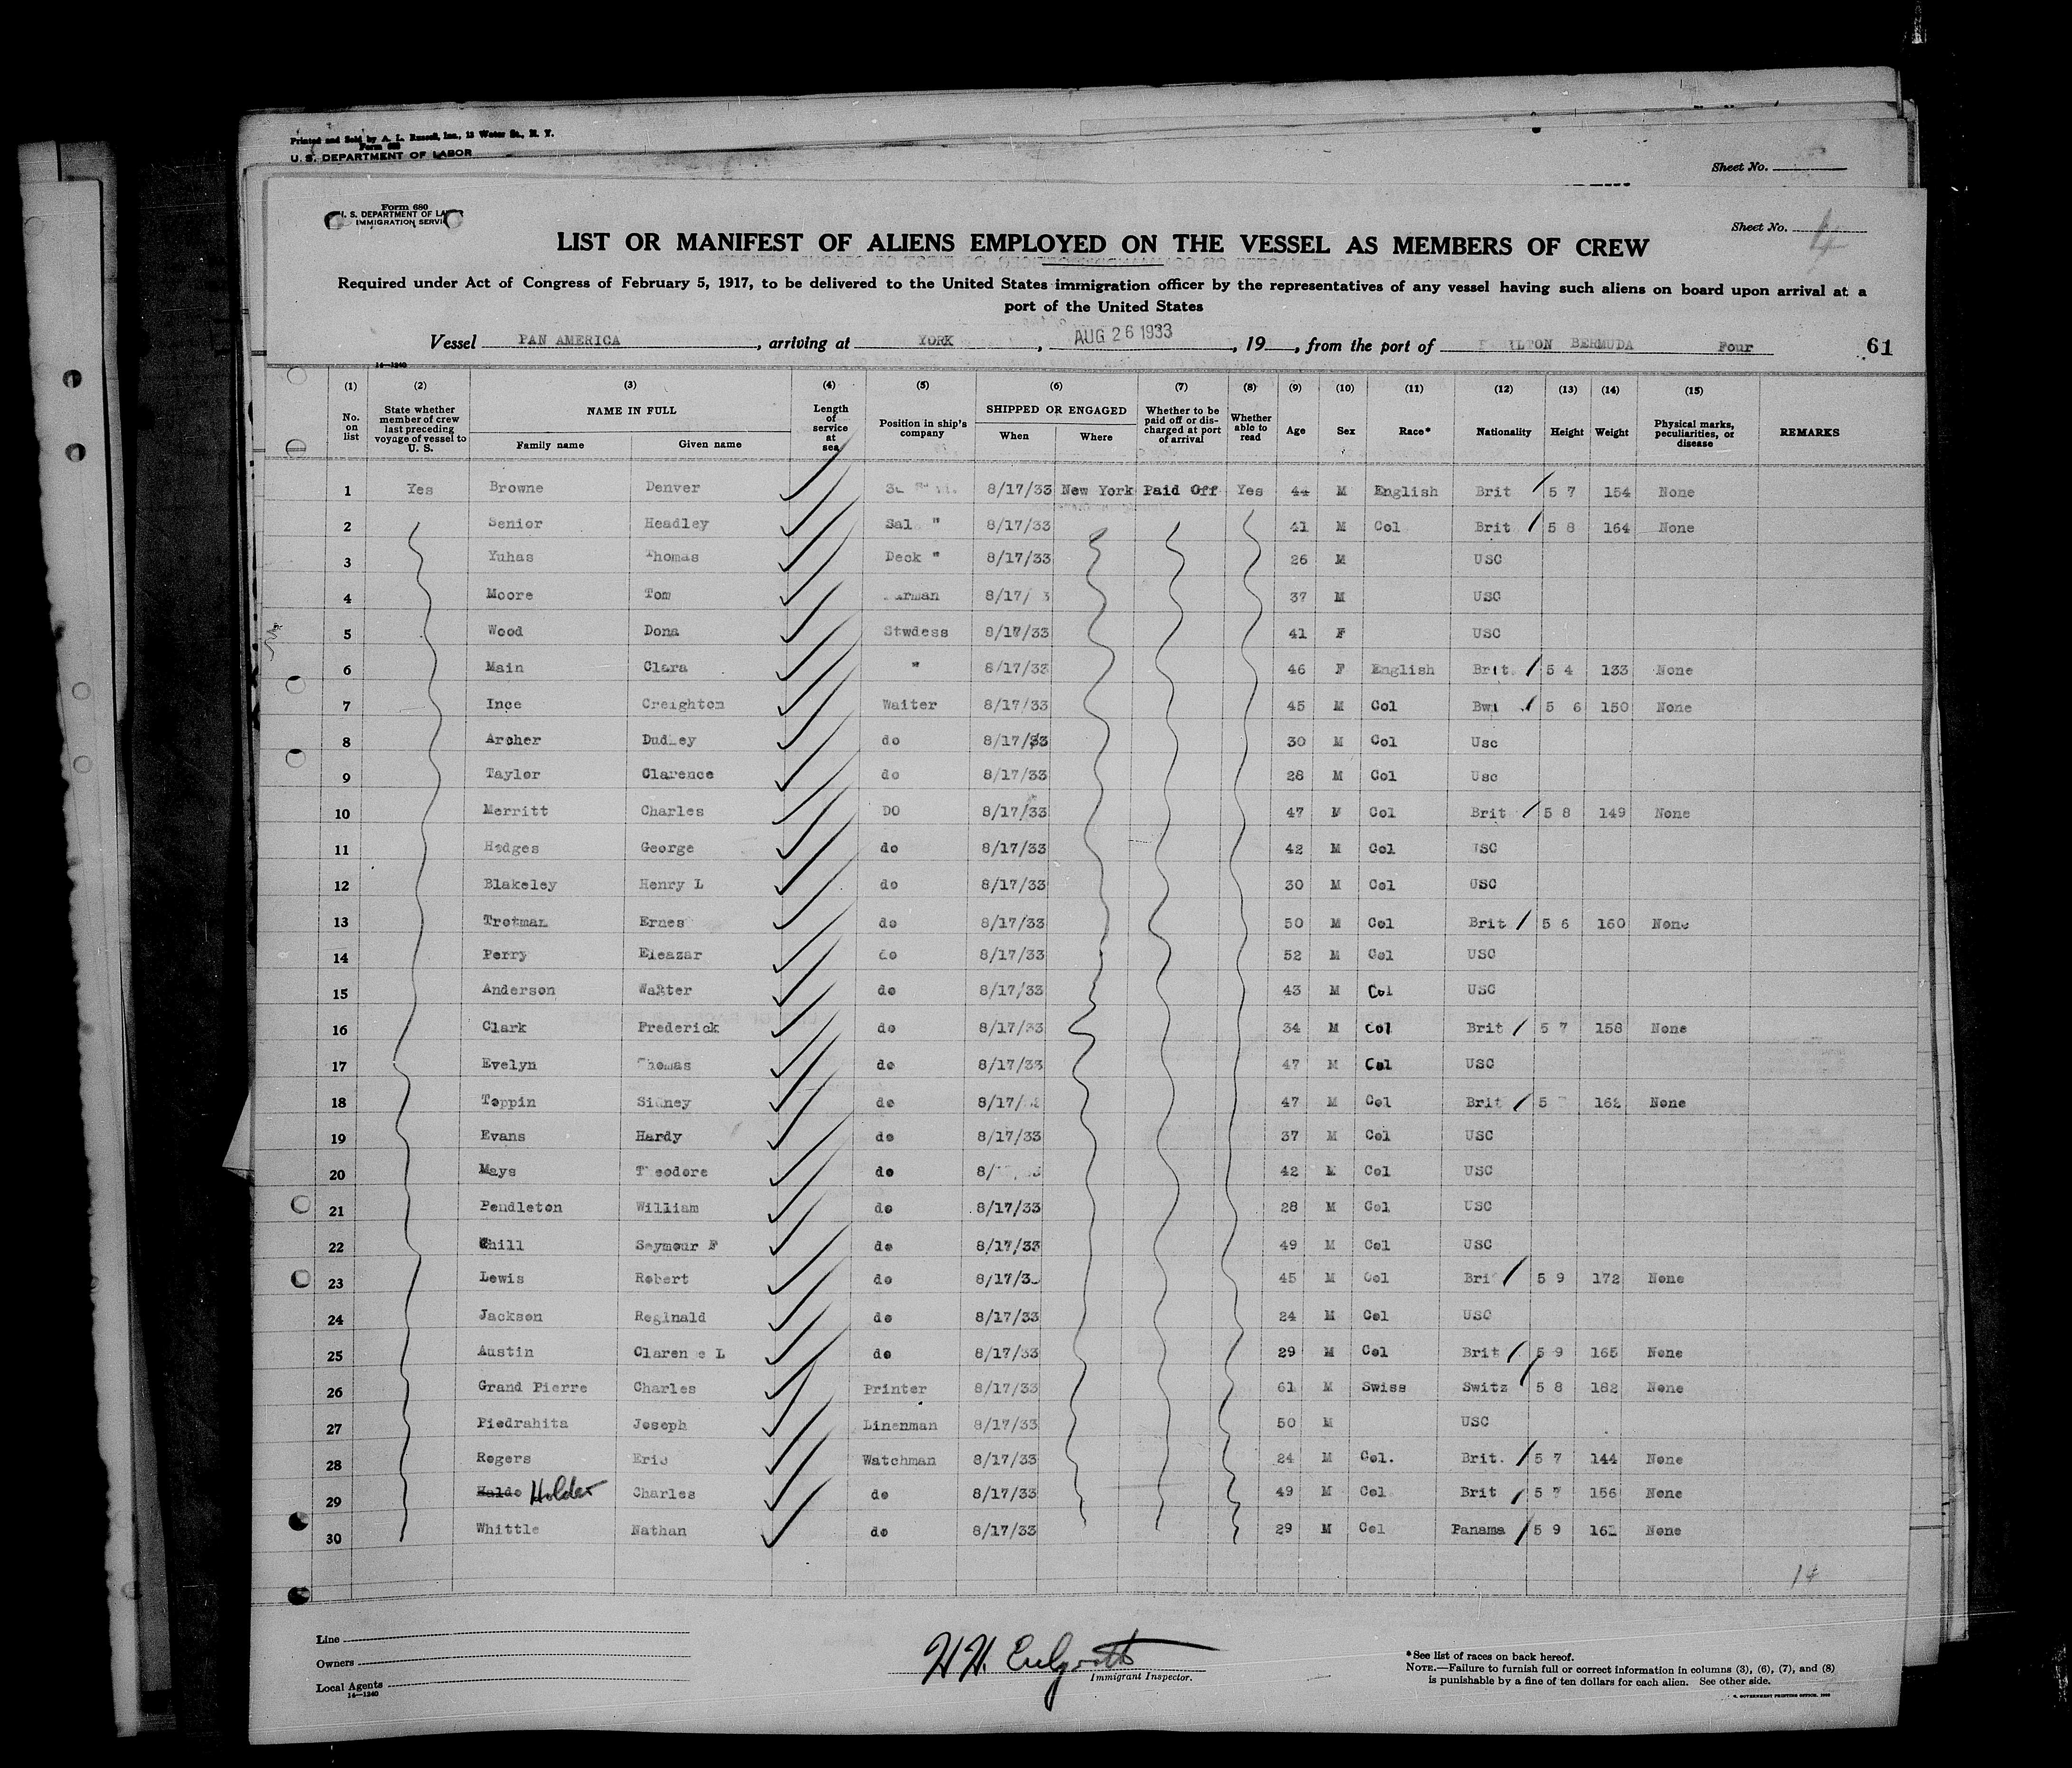 Printed and Sold by A. L. Russell, Inc., 13 Water St., N. Y.
Form 680
U. S. DEPARTMENT OF LABOR
Sheet No.
Form 680
U. S. DEPARTMENT OF LABOR
IMMIGRATION SERVICE
Sheet No. 4
LIST OR MANIFEST OF ALIENS EMPLOYED ON THE VESSEL AS MEMBERS OF CREW
Required under Act of Congress of February 5, 1917, to be delivered to the United States immigration officer by the representatives of any vessel having such aliens on board upon arrival at a
port of the United States
Vessel PAN AMERICA, arriving at YORK, AUG 26 1933, 19, from the port of BERMUDA Four 61
14—1240
(1) (2) (3) (4) (5) (6) (7) (8) (9) (10) (11) (12) (13) (14) (15)
No. on list State whether member of crew last preceding voyage of vessel to U. S. NAME IN FULL Family name Given name Length of service at sea Position in ship's company SHIPPED OR ENGAGED When Where Whether to be paid off or discharged at port of arrival Whether able to read Age Sex Race* Nationality Height Weight Physical marks, peculiarities, or disease REMARKS
1 Yes Browne Denver 8/17/33 New York Paid Off Yes 44 M English Brit 5 7 154 None
2 Senior Headley Sal " 8/17/33 41 M Col Brit 5 8 164 None
3 Yuhas Thomas Deck " 8/17/33 26 M USC
4 Moore Tom 8/17/ 3 37 M USC
5 Wood Dona Stwdess 8/17/33 41 F USC
6 Main Clara " 8/17/33 46 F English Brit. 5 4 133 None
7 Ince Creighton Waiter 8/17/33 45 M Col Bwi 5 6 150 None
8 Archer Dudley do 8/17/33 30 M Col Usc
9 Taylor Clarence do 8/17/33 28 M Col Usc
10 Merritt Charles DO 8/17/33 47 M Col Brit 5 8 149 None
11 Hodges George do 8/17/33 42 M Col USC
12 Blakeley Henry L do 8/17/33 30 M Col USC
13 Trotman Ernes do 8/17/33 50 M Col Brit 5 6 160 None
14 Perry Eleazar do 8/17/33 52 M Col USC
15 Anderson Walter do 8/17/33 43 M Col USC
16 Clark Frederick do 8/17/33 34 M Col Brit 5 7 158 None
17 Evelyn Thomas do 8/17/33 47 M Col USC
18 Toppin Sidney do 8/17/ 47 M Col Brit 5 162 None
19 Evans Hardy do 8/17/33 37 M Col USC
20 Mays Theodore do 8/ 42 M Col USC
21 Pendleton William do 8/17/33 28 M Col USC
22 Whill Seymour F do 8/17/33 49 M Col USC
23 Lewis Robert do 8/17/3 45 M Col Bri 5 9 172 None
24 Jackson Reginald do 8/17/33 24 M Col USC
25 Austin Clarence L do 8/17/33 29 M Col Brit 5 9 165 None
26 Grand Pierre Charles Printer 8/17/33 61 M Swiss Switz 5 8 182 None
27 Piedrahita Joseph Linenman 8/17/33 50 M USC
28 Rogers Eric Watchman 8/17/33 24 M Col. Brit. 5 7 144 None
29 Holder Charles do 8/17/33 49 M Col Brit 5 7 156 None
30 Whittle Nathan do 8/17/33 29 M Col Panama 5 9 161 None
14
Line
Owners
Local Agents
14—1240
Immigrant Inspector.
*See list of races on back hereof.
NOTE.—Failure to furnish full or correct information in columns (3), (6), (7), and (8)
is punishable by a fine of ten dollars for each alien. See other side.